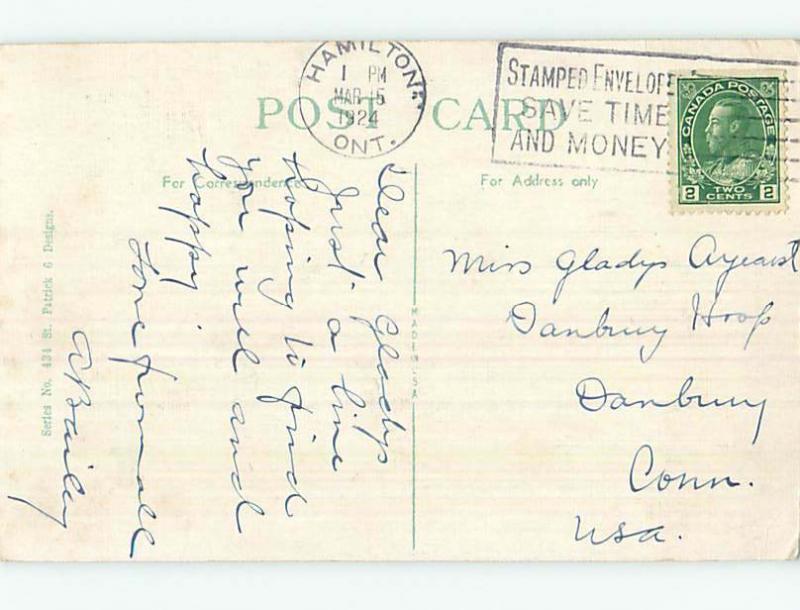 HAMILTON
1 PM
MAR 15
1924
ONT.
STAMPED ENVELOPES
SAVE TIME
AND MONEY
CANADA POSTAGE
2 TWO CENTS 2
POST CARD
For Correspondence
For Address only
Dear Gladys
Just a line
hoping to find
you well and
happy
Love from all
A Bailey
Miss Gladys Ayearst
Danbury Hosp
Danbury
Conn.
Usa.
MADE IN USA
Series No. 434 St. Patrick 6 Designs.